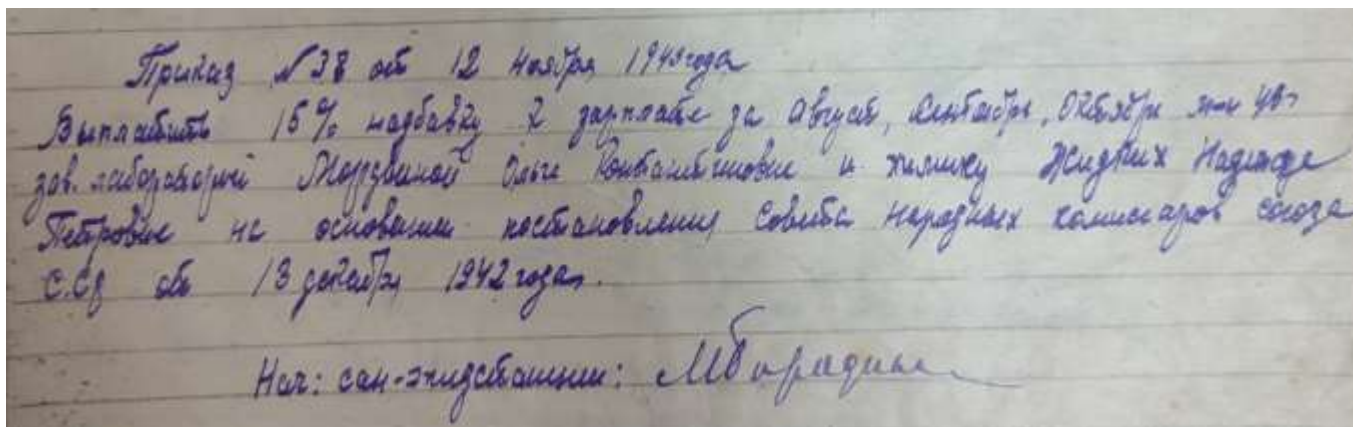 Приказ №38 от 12 ноября 1943 года
Выплатить 15% надбавку к зарплате за Август, Сентябрь, Октябрь м-ц 43г
зав. лабораторией Мордвиной Ольге Константиновне и химику Жидких Надежде
Петровне на основании постановления Совета народных комиссаров союза
С.С.Р от 13 декабря 1942 года.
Нач: сан-эпидстанции: